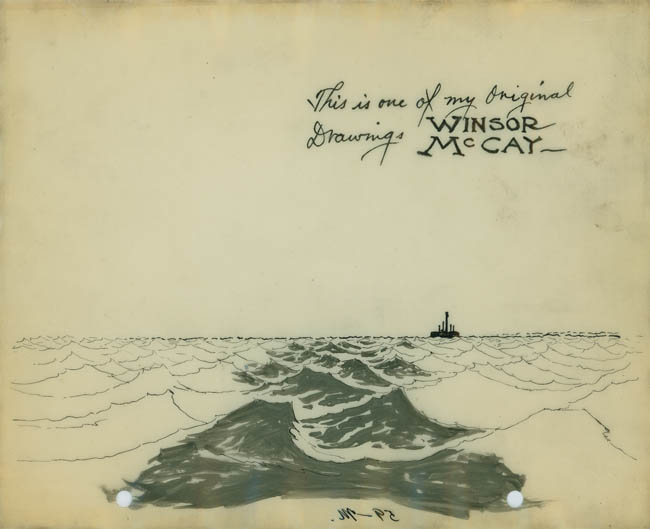 This is one of my Original
Drawings WINSOR
McCAY
59-M.